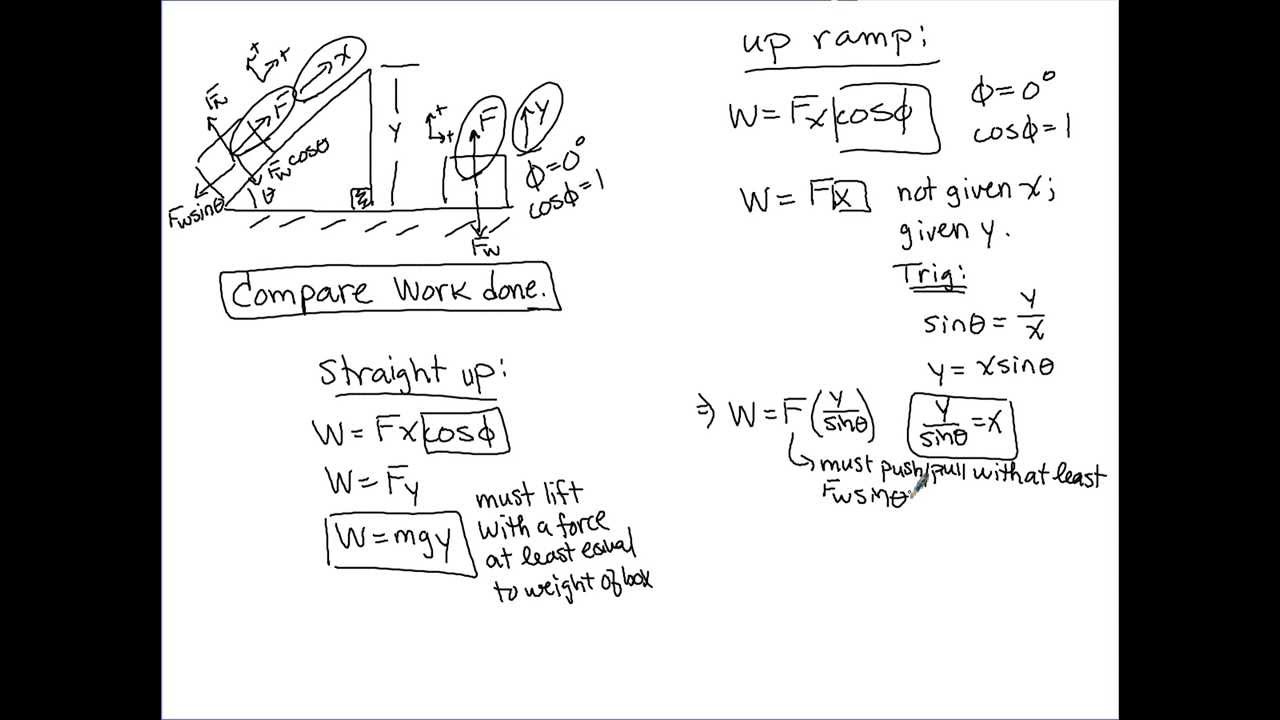 +
+
x
F
F_N
F_W cosθ
F_W sinθ
θ
Y
+
+
F
Y
ϕ=0°
cosϕ=1
F_W
Compare Work done.
Straight up:
W=Fxcosϕ
W=Fy
W=mgy
must lift
with a force
at least equal
to weight of box
up ramp:
W=Fxcosϕ
ϕ=0°
cosϕ=1
W=Fx
not given x;
given y.
Trig:
sinθ=y/x
y=xsinθ
⇒ W=F(y/sinθ)
y/sinθ=x
must push/pull with at least
F_W sinθ